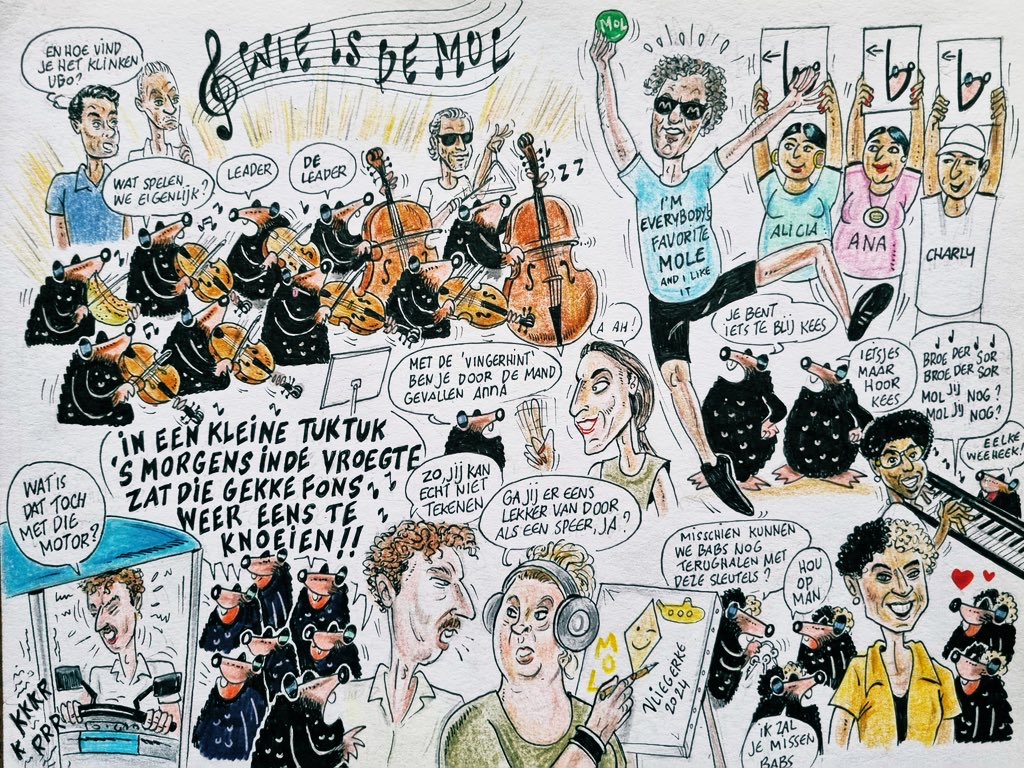 EN HOE VIND
JE HET KLINKEN
UGO?
WIE IS DE MOL
WAT SPELEN
WE EIGENLIJK?
LEADER
DE
LEADER
ZZ
MOL
M M
I'M
EVERYBODY'S
FAVORITE
MOLE
AND I LIKE
IT
ALICIA
ANA
CHARLY
A AH!
JE BENT
IETS TE BLIJ KEES
IETSJES
MAAR
HOOR
KEES
BROE DER SOR
BROE DER SOR
MOL JY NOG?
MOL JY NOG?
EELKE
WEEHEEK!
MET DE 'VINGERHINT'
BEN JE DOOR DE MAND
GEVALLEN ANNA
IN EEN KLEINE TUKTUK
'S MORGENS IN DE VROEGTE
ZAT DIE GEKKE FONS
WEER EENS TE
KNOEIEN!!
WAT IS
DAT TOCH
MET DIE
MOTOR?
KKKR
RRRR
ZO, JIJ KAN
ECHT NIET
TEKENEN
GA JIJ ER EENS
LEKKER VAN DOOR
ALS EEN SPEER, JA?
MOL
VLIEGERKE
2024
MISSCHIEN KUNNEN
WE BABS NOG
TERUGHALEN MET
DEZE SLEUTELS?
HOU
OP
MAN
IK ZAL
JE MISSEN
BABS